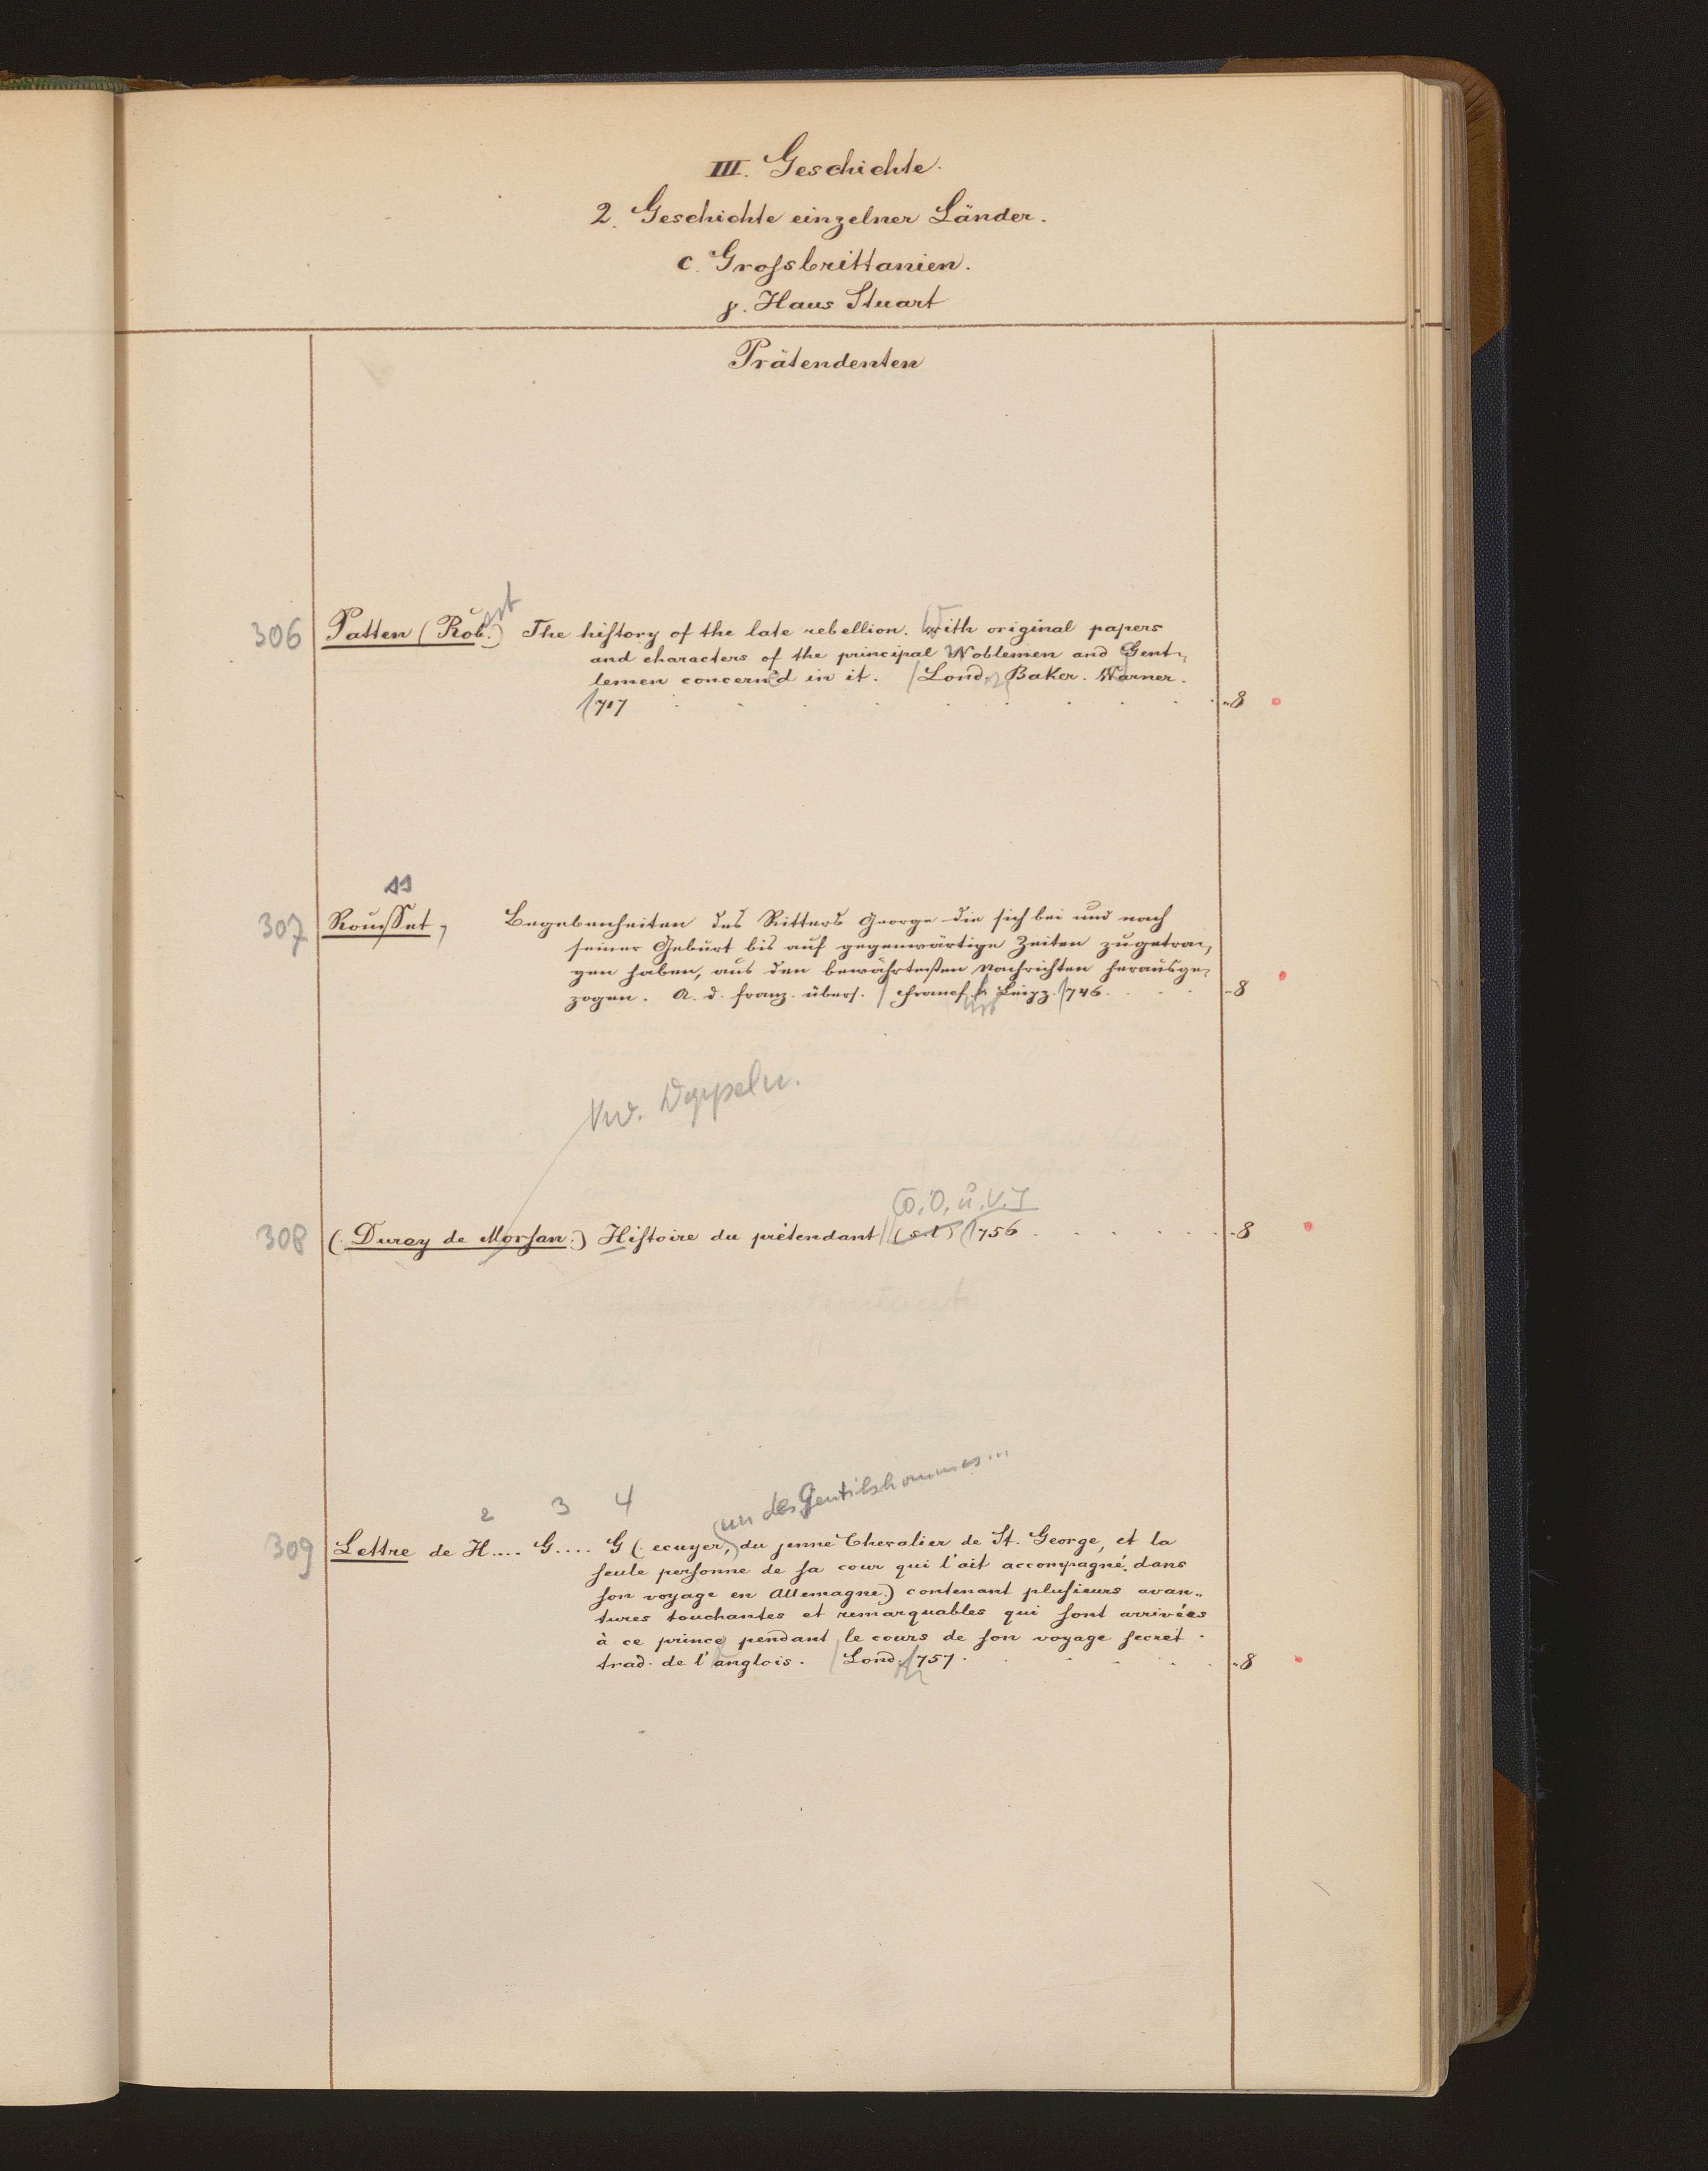 III. Geschichte.
2. Geschichte einzelner Länder.
c. Groſsbrittanien.
γ. Haus Stuart
Prätendenten
306 Patten (Rob.) ert The hiſtory of the late rebellion. With original papers
and characters of the principal Noblemen and Gent-
lemen concern'd in it. / Lond. Baker. Warner.
1717 8
ss
307 Rousset, Begebenheiten des Ritters George die sich bei und nach
seiner Geburt bis auf gegenwärtige Zeiten zugetra-
gen haben, aus den bewährtesten Nachrichten herausge-
zogen. A. d. franz. übers. / Francf. u. Leipz. 1746. 8
Doppeln.
O. O. u. V. 
308 (Durey de Morſan.) Hiſtoire du prétendant // (s. l.) 1756 8
un des Gentilshommes...
2 3 4
309 Lettre de H.... G.... G (ecuyer, du jeune Chevalier de St. George, et la
ſeule perſonne de ſa cour qui l'ait accompagné dans
ſon voyage en Allemagne.) contenant pluſieurs avan-
tures touchantes et remarquables qui ſont arrivées
à ce prince pendant le cours de ſon voyage ſecret.
trad. de l'anglois. / Lond. 1757. 8